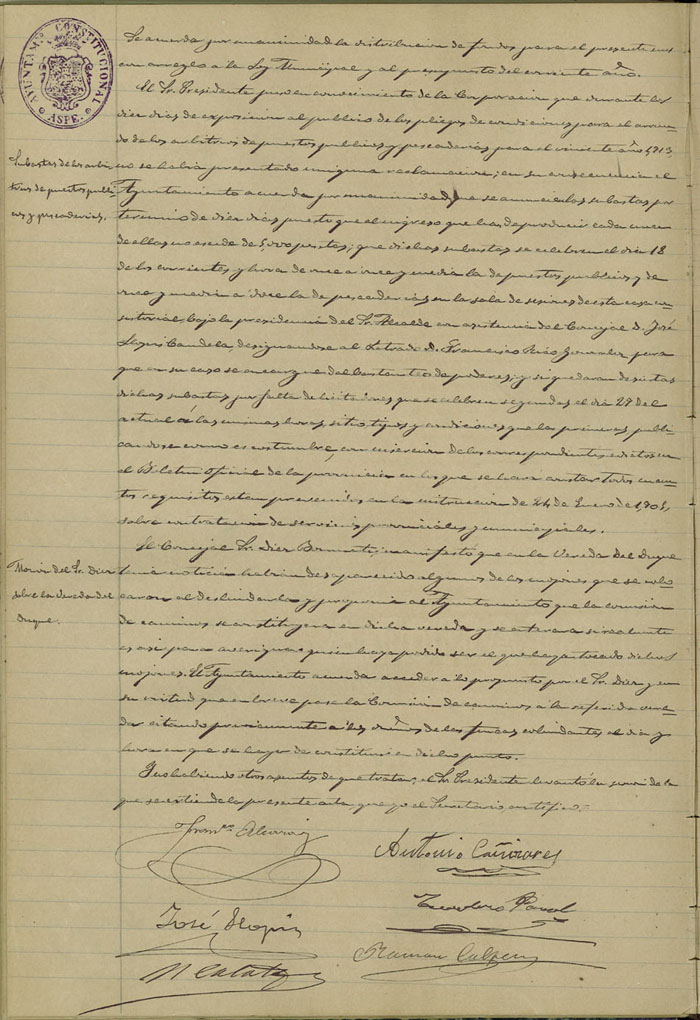 AYUNTAM.º CONSTITUCIONAL
ASPE
Se acuerda por unanimidad la distribucion de fondos para el presente mes
con arreglo a la Ley Municipal y al presupuesto del corriente año.
El Sr. Presidente puso en conocimiento de la Corporacion que durante los
diez dias de exposicion al publico de los pliegos de condiciones para el arrien-
do de los arbitrios de puestos publicos y pescaderias para el viniente año 1,913,
no se habia presentado ninguna reclamacion; en su consecuencia el
Subastas de los arbi-
trios de puestos publi-
cos y pescaderias.
Ayuntamiento acuerda por unanimidad que se anuncien las subastas por
termino de diez dias puesto que el ingreso que han de producir cada una
de ellas no escede de 5,000 pesetas; que dichas subastas se celebren el dia 18
de los corrientes y hora de once a once y media la de puestos publicos y de
once y media a doce la de pescaderias en la sala de sesiones de esta casa con-
sistorial, bajo la presidencia del Sr. Alcalde con asistencia del Concejal D. José
Candela, designandose al Letrado D. Francisco Rico Gonzalez, para
que en su caso se encargue del bastanteo de poderes; y si quedaran desiertas
dichas subastas por falta de licitadores que se celebren segundas el dia 29 del
actual á las mismas horas, sitio, tipos y condiciones que las primeras publi-
candose como es costumbre, con insercion de los correspondientes edictos en
el Boletin Oficial de la provincia en los que se hará constar todos cuan-
tos requisitos estan prevenidos en la instruccion de 24 de Enero de 1,905,
sobre contratacion de servicios provinciales y municipales.
Mocion del Sr. Diez
sobre la Vereda del
Duque.
El Concejal Sr. Diez manifestó que en la Vereda del Duque
tenia noticia habian desaparecido algunos de los mojones que se colo-
caron al deslindarla y proponia al Ayuntamiento que la comision
de caminos se constituyera en dicha vereda y se enterara si realmente
es asi para averiguar quien haya podido ser el que haya tocado dichos
mojones. El Ayuntamiento acuerda acceder a lo propuesto por el Sr. Diez y en
su virtud que en breve pase la Comision de caminos a la referida vere-
da citando previamente a los dueños de las fincas colindantes al dia y
hora en que se hayan de constituir en dicho punto.
Y no habiendo otros asuntos de que tratar, el Sr. Presidente levantó la sesion de la
que se estiende la presente acta, que yo el Secretario certifico.
Antonio Cañizares
José
Ramon